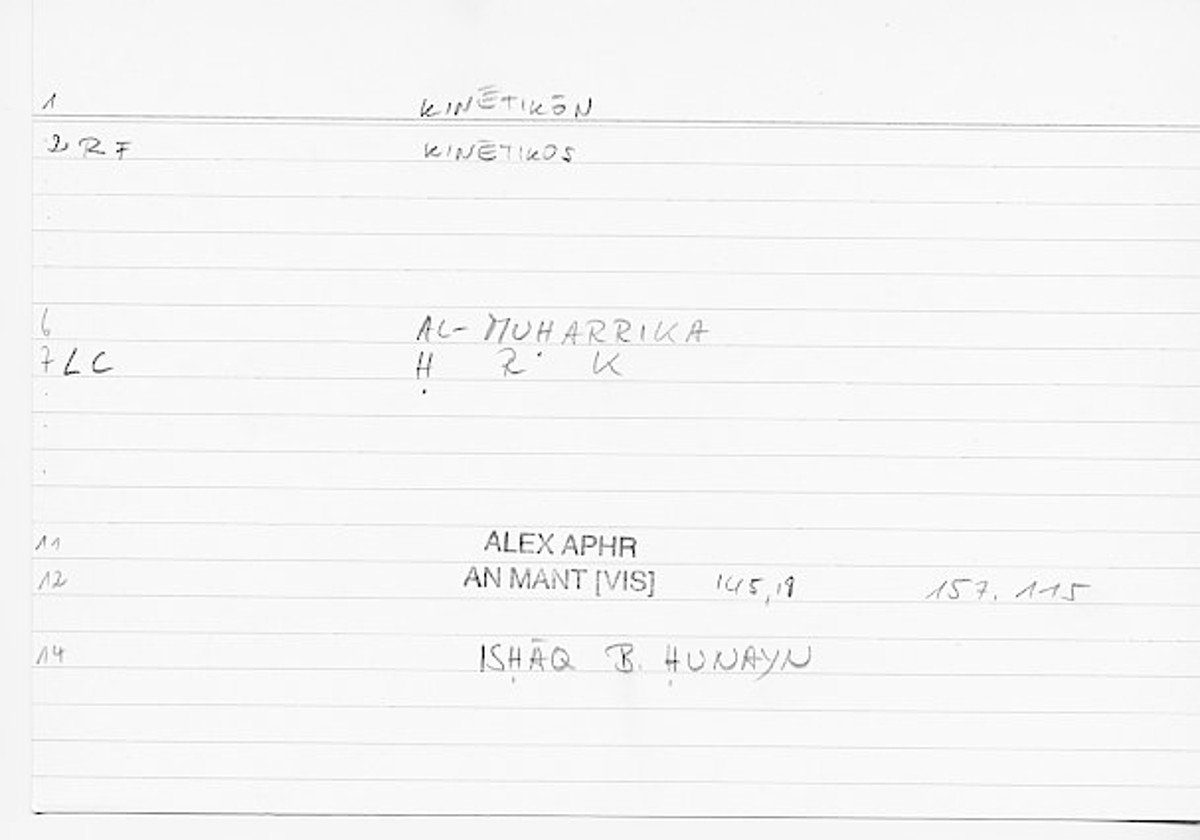 1 KINĒTIKŌN
2 RF KINĒTIKOS
6 AL-MUHARRIKA
7 LC Ḥ R K
11 ALEX APHR
12 AN MANT [VIS] 145,19 157.115
14 ISḤĀQ B. ḤUNAYN